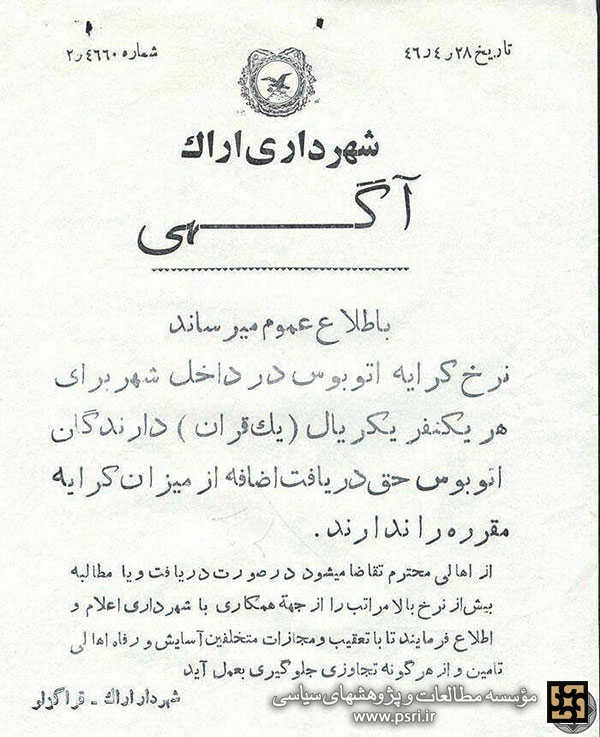 تاریخ ۲۸ ر ۴ ر ۴۶
شماره ۴۶۶۰ ر ۲
شهرداری اراک
آگهی
باطلاع عموم میرساند
نرخ کرایه اتوبوس در داخل شهر برای
هر یکنفر یکریال (یك قران) دارندگان
اتوبوس حق دریافت اضافه از میزان کرایه
مقرره را ندارند.
از اهالی محترم تقاضا میشود در صورت دریافت و یا مطالبه
بیش از نرخ بالا مراتب را از جهة همکاری با شهرداری اعلام و
اطلاع فرمایند تا با تعقیب و مجازات متخلفین آسایش و رفاه اهالی
تامین و از هر گونه تجاوزی جلوگیری بعمل آید
شهردار اراک - قراگزلو
مؤسسه مطالعات و پژوهشهای سیاسی
www.psri.ir